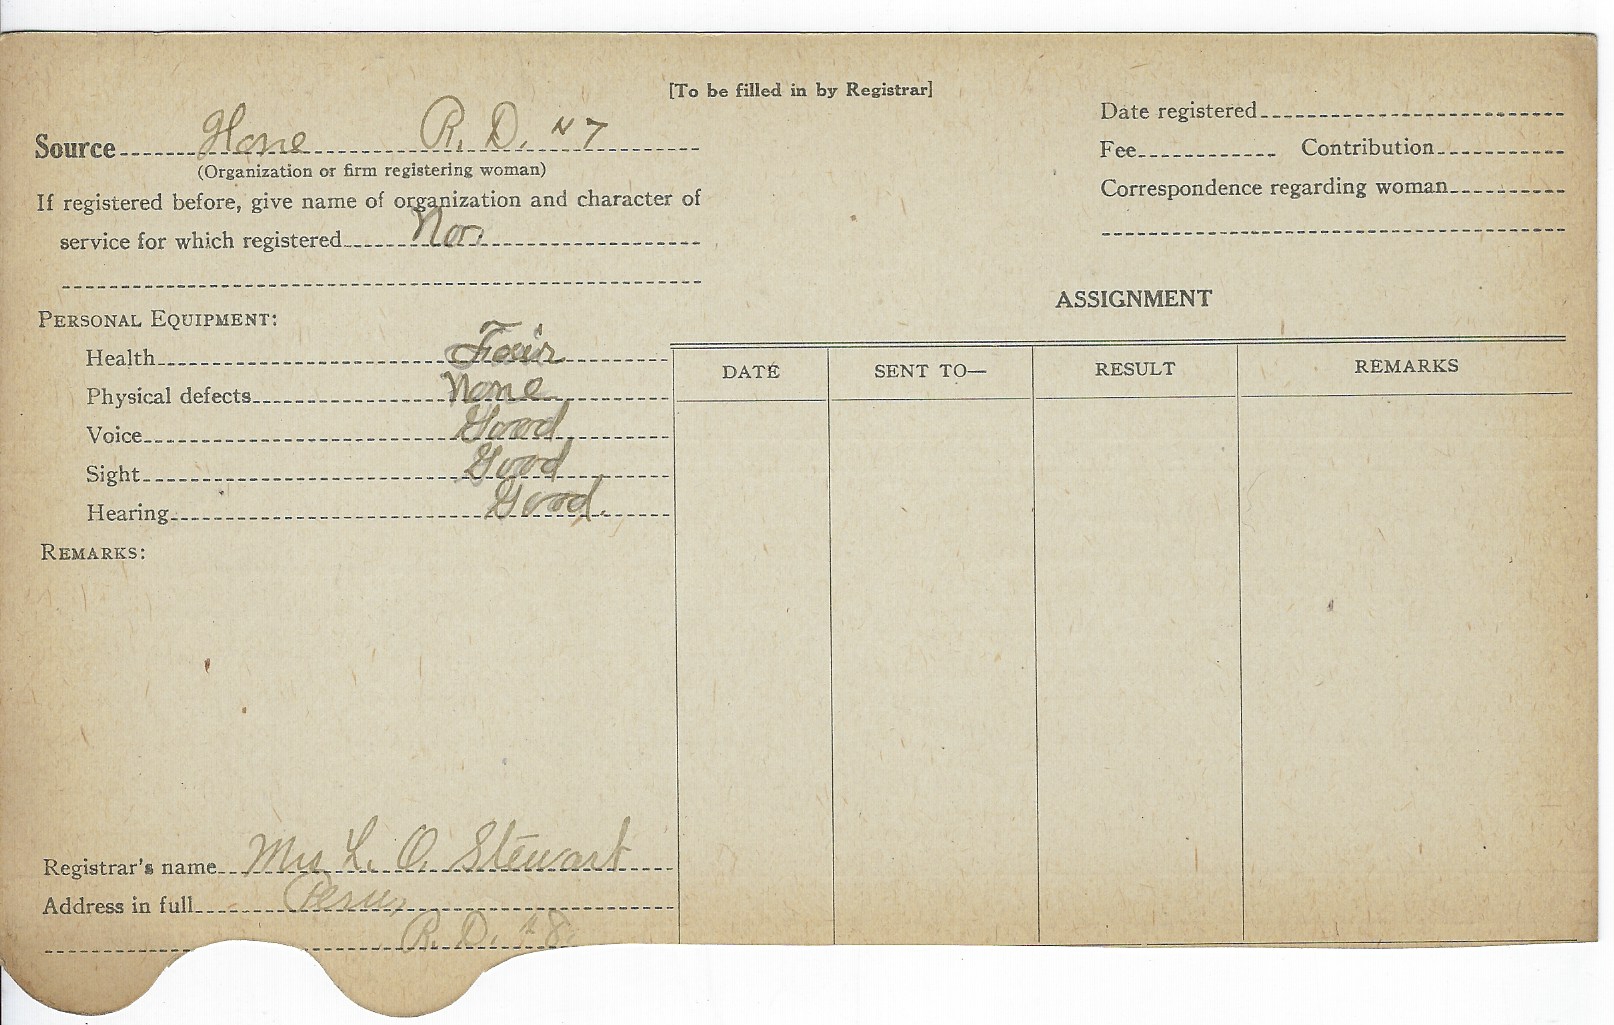 [To be filled in by Registrar]
Source Home R. D. #7
(Organization or firm registering woman)
If registered before, give name of organization and character of
service for which registered Non
PERSONAL EQUIPMENT:
Health Fair
Physical defects None
Voice Good
Sight Good
Hearing Good.
REMARKS:
Registrar's name Mrs L. O. Stewart
Address in full Peru,
R. D. #8
Date registered
Fee Contribution
Correspondence regarding woman
ASSIGNMENT
DATE SENT TO— RESULT REMARKS